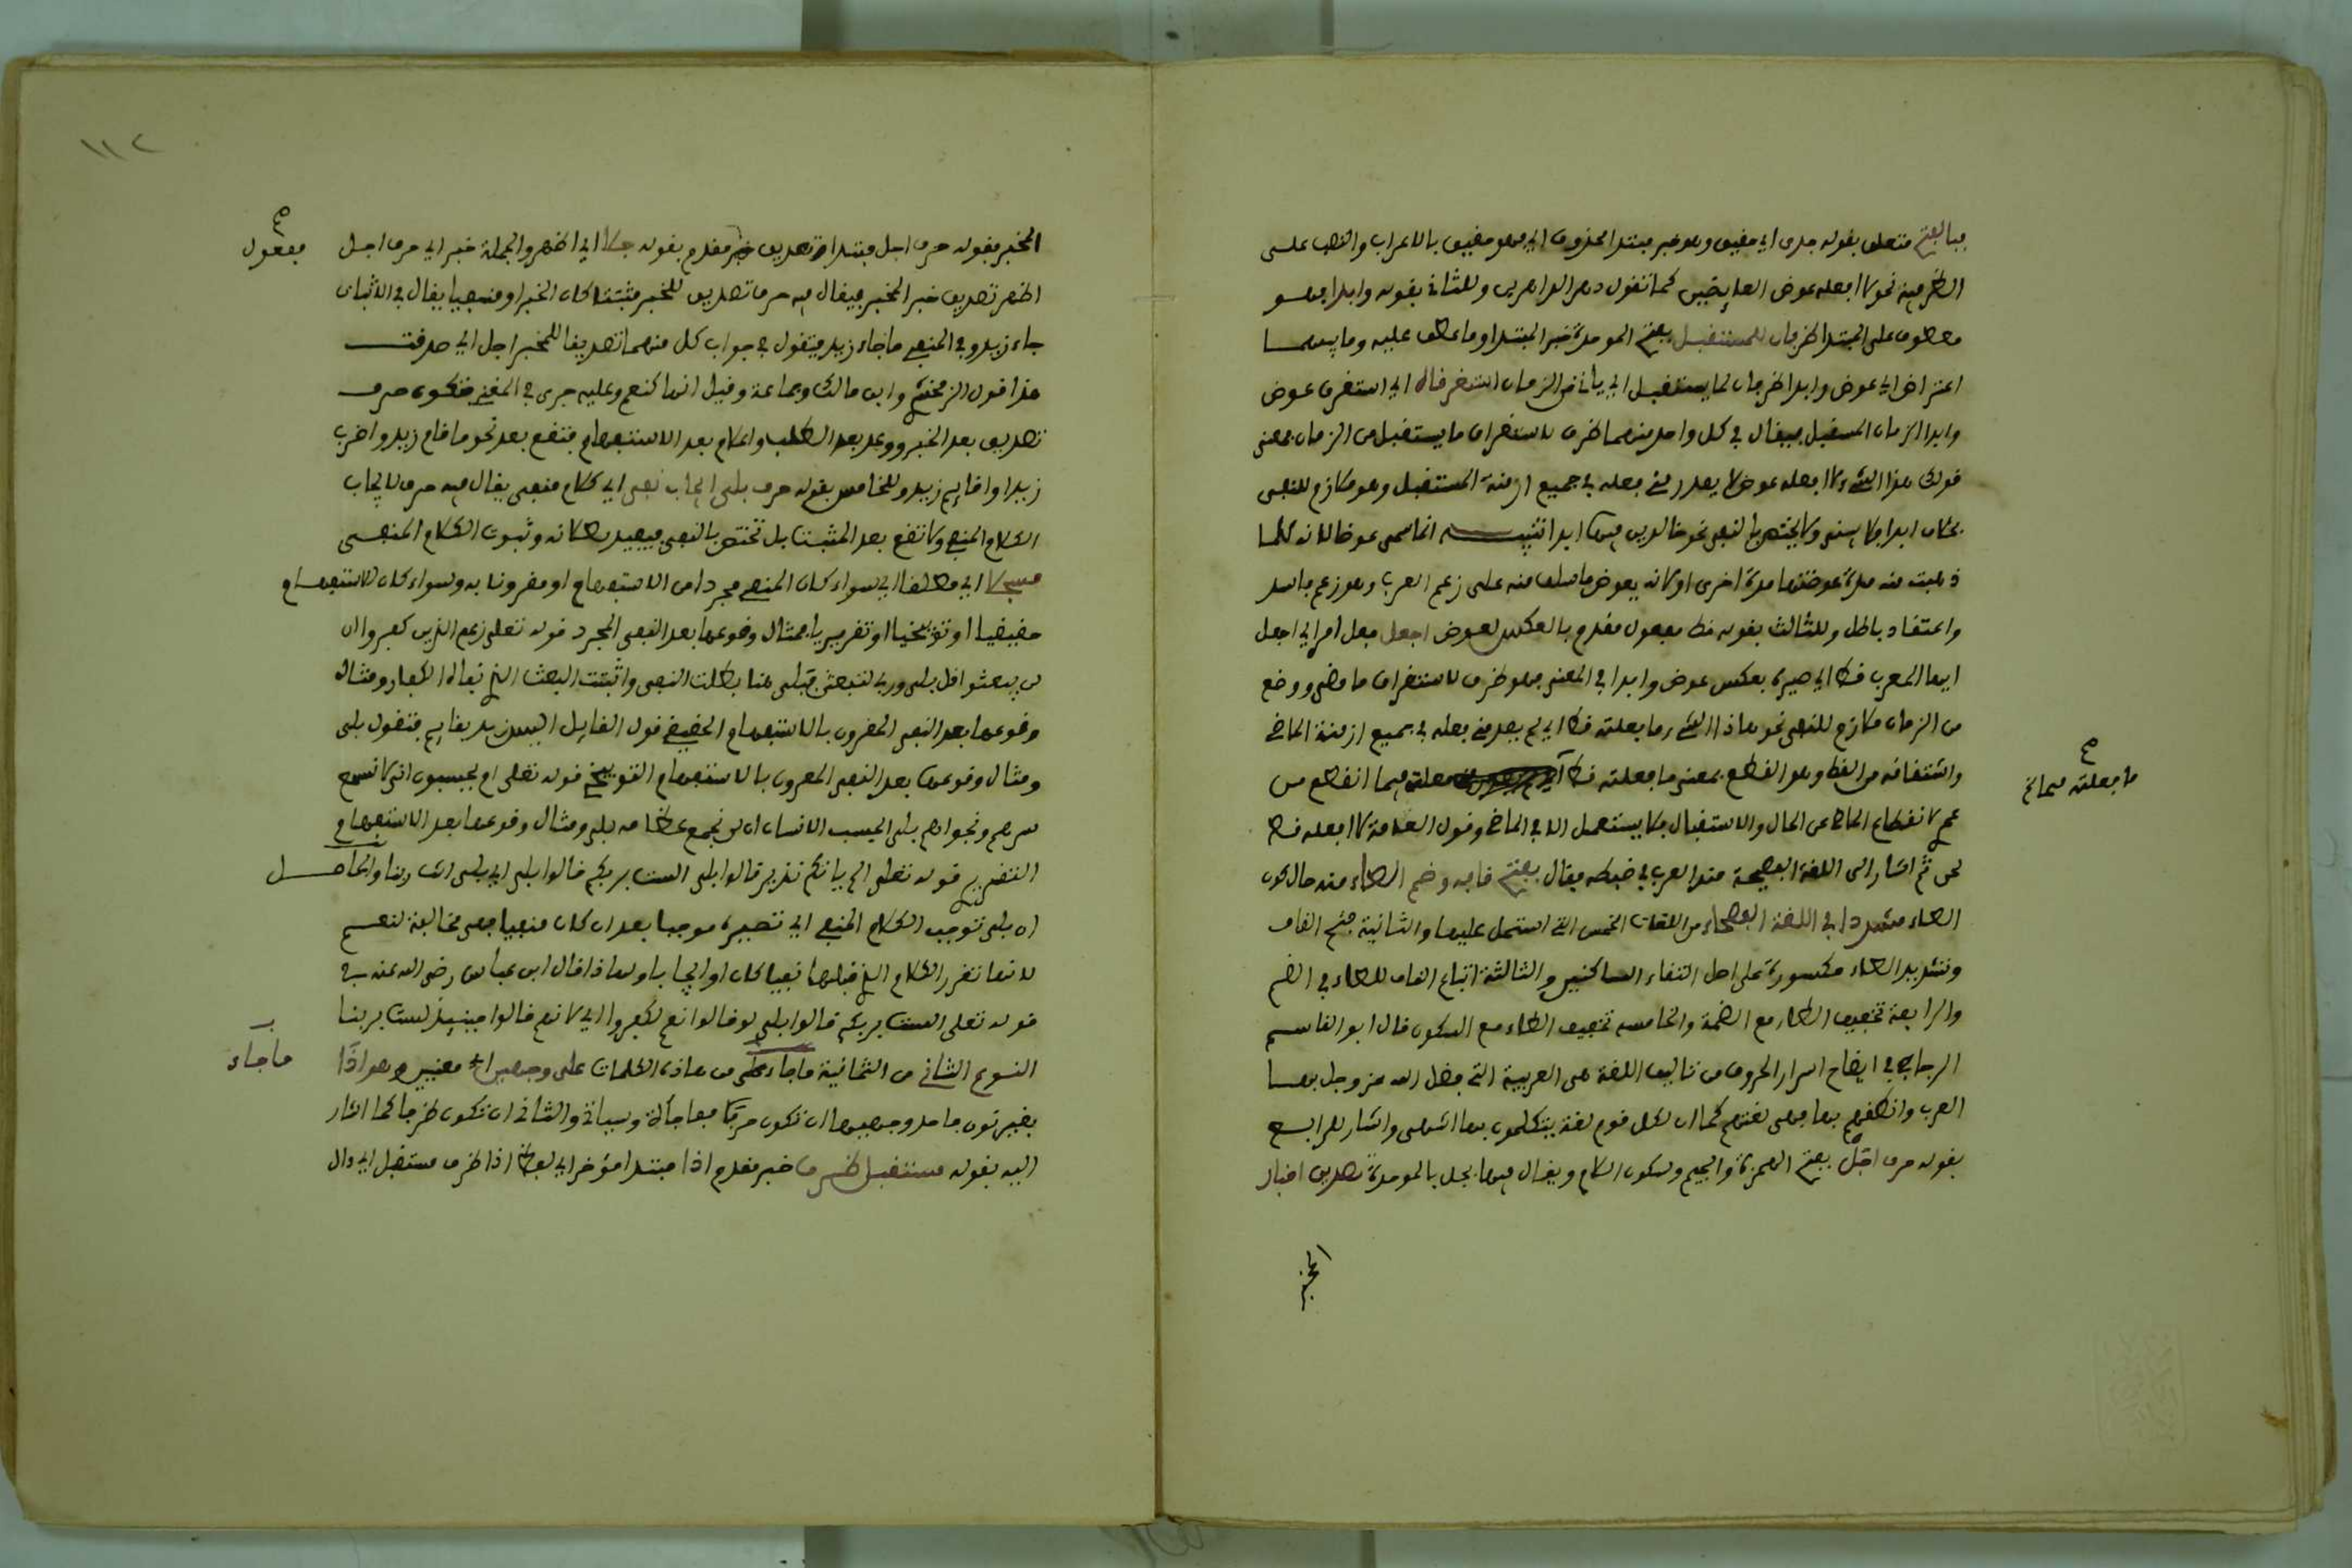 فبالفتح متعلق بقوله جلى اي حقيق وهو خبر مبتدا محذوف اي وهو حقيق بالاعراب والنصب على
الظرفية نحو لا افعله عوض العايضين كما تقول دهر الداهرين وللثاني بقوله وابدا وهو
معطوف على المبتدا ظرفان للمستقبل بفتح الموحدة خبر المبتدا وما عطف عليه وما بينهما
اعتراض اي عوض وابدا ظرفان لما يستقبل اي ياتي من الزمان استغرقاه اي استغرق عوض
وابدا الزمان المستقبل فيقال في كل واحد منهما ظرف لاستغراق ما يستقبل من الزمان فمعنى
قولك هذا الشيء لا افعله عوض لا يصدر مني فعله في جميع ازمنة المستقبل وهو ملازم للنفي
بخلاف ابدا ولا يختص بالنفي نحو خالدين فيها ابدا تنبيه انما سمى عوضا لانه كلما
ذهبت منه مدة عوضتها مدة اخرى او لانه يعوض ما سلف منه على زعم العرب وهو زعم فاسد
واعتقاد باطل وللثالث بقوله قط مفعول مقدم بالعكس لعوض اجعل فعل امر اي اجعل
ايها المعرب قط اي صيره بعكس عوض وابدا في المعنى فهو ظرف لاستغراق ما مضى ووضع
من الزمان ملازم للنفي نحو هاذا الشيء ما فعلته قط اي لم يصدر مني فعله في جميع ازمنة الماضي
واشتقاقه من القط وهو القطع فمعنى ما فعلته قط اي فيما انقطع من
ما فعلته فيما صح
عمري لانقطاع الماضي عن الحال والاستقبال فلا يستعمل الا في الماضي وقول العامة لا افعله قط
لحن ثم اشار الى اللغة الفصيحة عند العرب في ضبطه فقال بفتح قافه وضم الطاء منه حال كون
الطاء مشددا في اللغة الفصحاء من اللغات الخمس التي استعمل عليها والثانية فتح القاف
وتشديد الطاء مكسورة على اصل التقاء الساكنين والثالثة اتباع القاف للطاء في الضم
والرابعة تخفيف الطاء مع الضمة والخامسة تخفيف الطاء مع السكون قال ابو القاسم
الزجاجي في ايضاح اسرار الحروف من تاليف اللغة هي العربية التي فضل الله عز وجل بها
العرب وانطقهم بها فهي لغتهم كما ان لكل قوم لغة يتكلمون بها انتهى واشار للرابع
بقوله حرف اجل بفتح الهمزة والجيم وسكون اللام ويقال فيها بجل بالموحدة تصديق اخبار
المخبر
١١٢
المخبر بقوله حرف اجل مبتدا وتصديق خبر مقدم بقوله جلا اي اظهر والجملة خبر اي حرف اجل
مفعول صح
اظهر تصديق خبر المخبر فيقال فيه حرف تصديق للخبر مثبتا كان الخبر او منفيا يقال في الاثبات
جاء زيد وفي المنفي ما جاء زيد فتقول في جواب كل منهما تصديقا للمخبر اجل اي صدقت
هذا قول الزمخشري وابن مالك وجماعة وقيل انها كنعم وعليه جرى في المغني فتكون حرف
تصديق بعد الخبر ووعد بعد الطلب واعلام بعد الاستفهام فتقع بعد نحو ما قام زيد واضرب
زيدا واقايم زيد وللخامس بقوله حرف بلى ايجاب نفي اي كلام منفي يقال فيه حرف لايجاب
الكلام المنفي ولا تقع بعد المثبت بل تختص بالنفي فيفيد بطلانه وثبوت الكلام المنفي
مسجلا اي مطلقا اي سواء كان المنفي مجردا من الاستفهام او مقرونا به وسواء كان الاستفهام
حقيقيا او توبيخيا او تقريريا فمثال وقوعها بعد النفي المجرد قوله تعلى زعم الذين كفروا ان
لن يبعثوا قل بلى وربي لتبعثن فبلى هنا بطلت النفي واثبتت البعث الذي نفاه الكفار ومثال
وقوعها بعد النفي المقرون بالاستفهام الحقيقي قول القايل اليس زيد بقايم فتقول بلى
ومثال وقوعها بعد النفي المقرون بالاستفهام التوبيخي قوله تعلى ام يحسبون انا لا نسمع
سرهم ونجواهم بلى ايحسب الانسان ان لن نجمع عظامه بلى ومثال وقوعها بعد الاستفهام
التقريري قوله تعلى الم ياتكم نذير قالوا بلى الست بربكم قالوا بلى اي بلى انت ربنا والحاصل
ان بلى توجب الكلام المنفي اي تصيره موجبا بعد ان كان منفيا فهى مخالفة لنعم
لانها تقرر الكلام الذي قبلها نفيا كان او ايجابا ولهاذا قال ابن عباس رضي الله عنه في
قوله تعلى الست بربكم قالوا بلى لو قالوا نعم لكفروا اي لانهم قالوا حينيذ لست بربنا
النوع الثاني من الثمانية ما جاء من هاذه الكلمات على وجهين اي معنيين وهو اذا
ما جاء
بغير تنوين فاحد وجهيها ان تكون حرف مفاجاة وسياتي والثاني ان تكون ظرفا كما اشار
اليه بقوله مستقبل ظرف خبر مقدم اذا مبتدا مؤخر اي لفظ اذا ظرف مستقبل اي دال